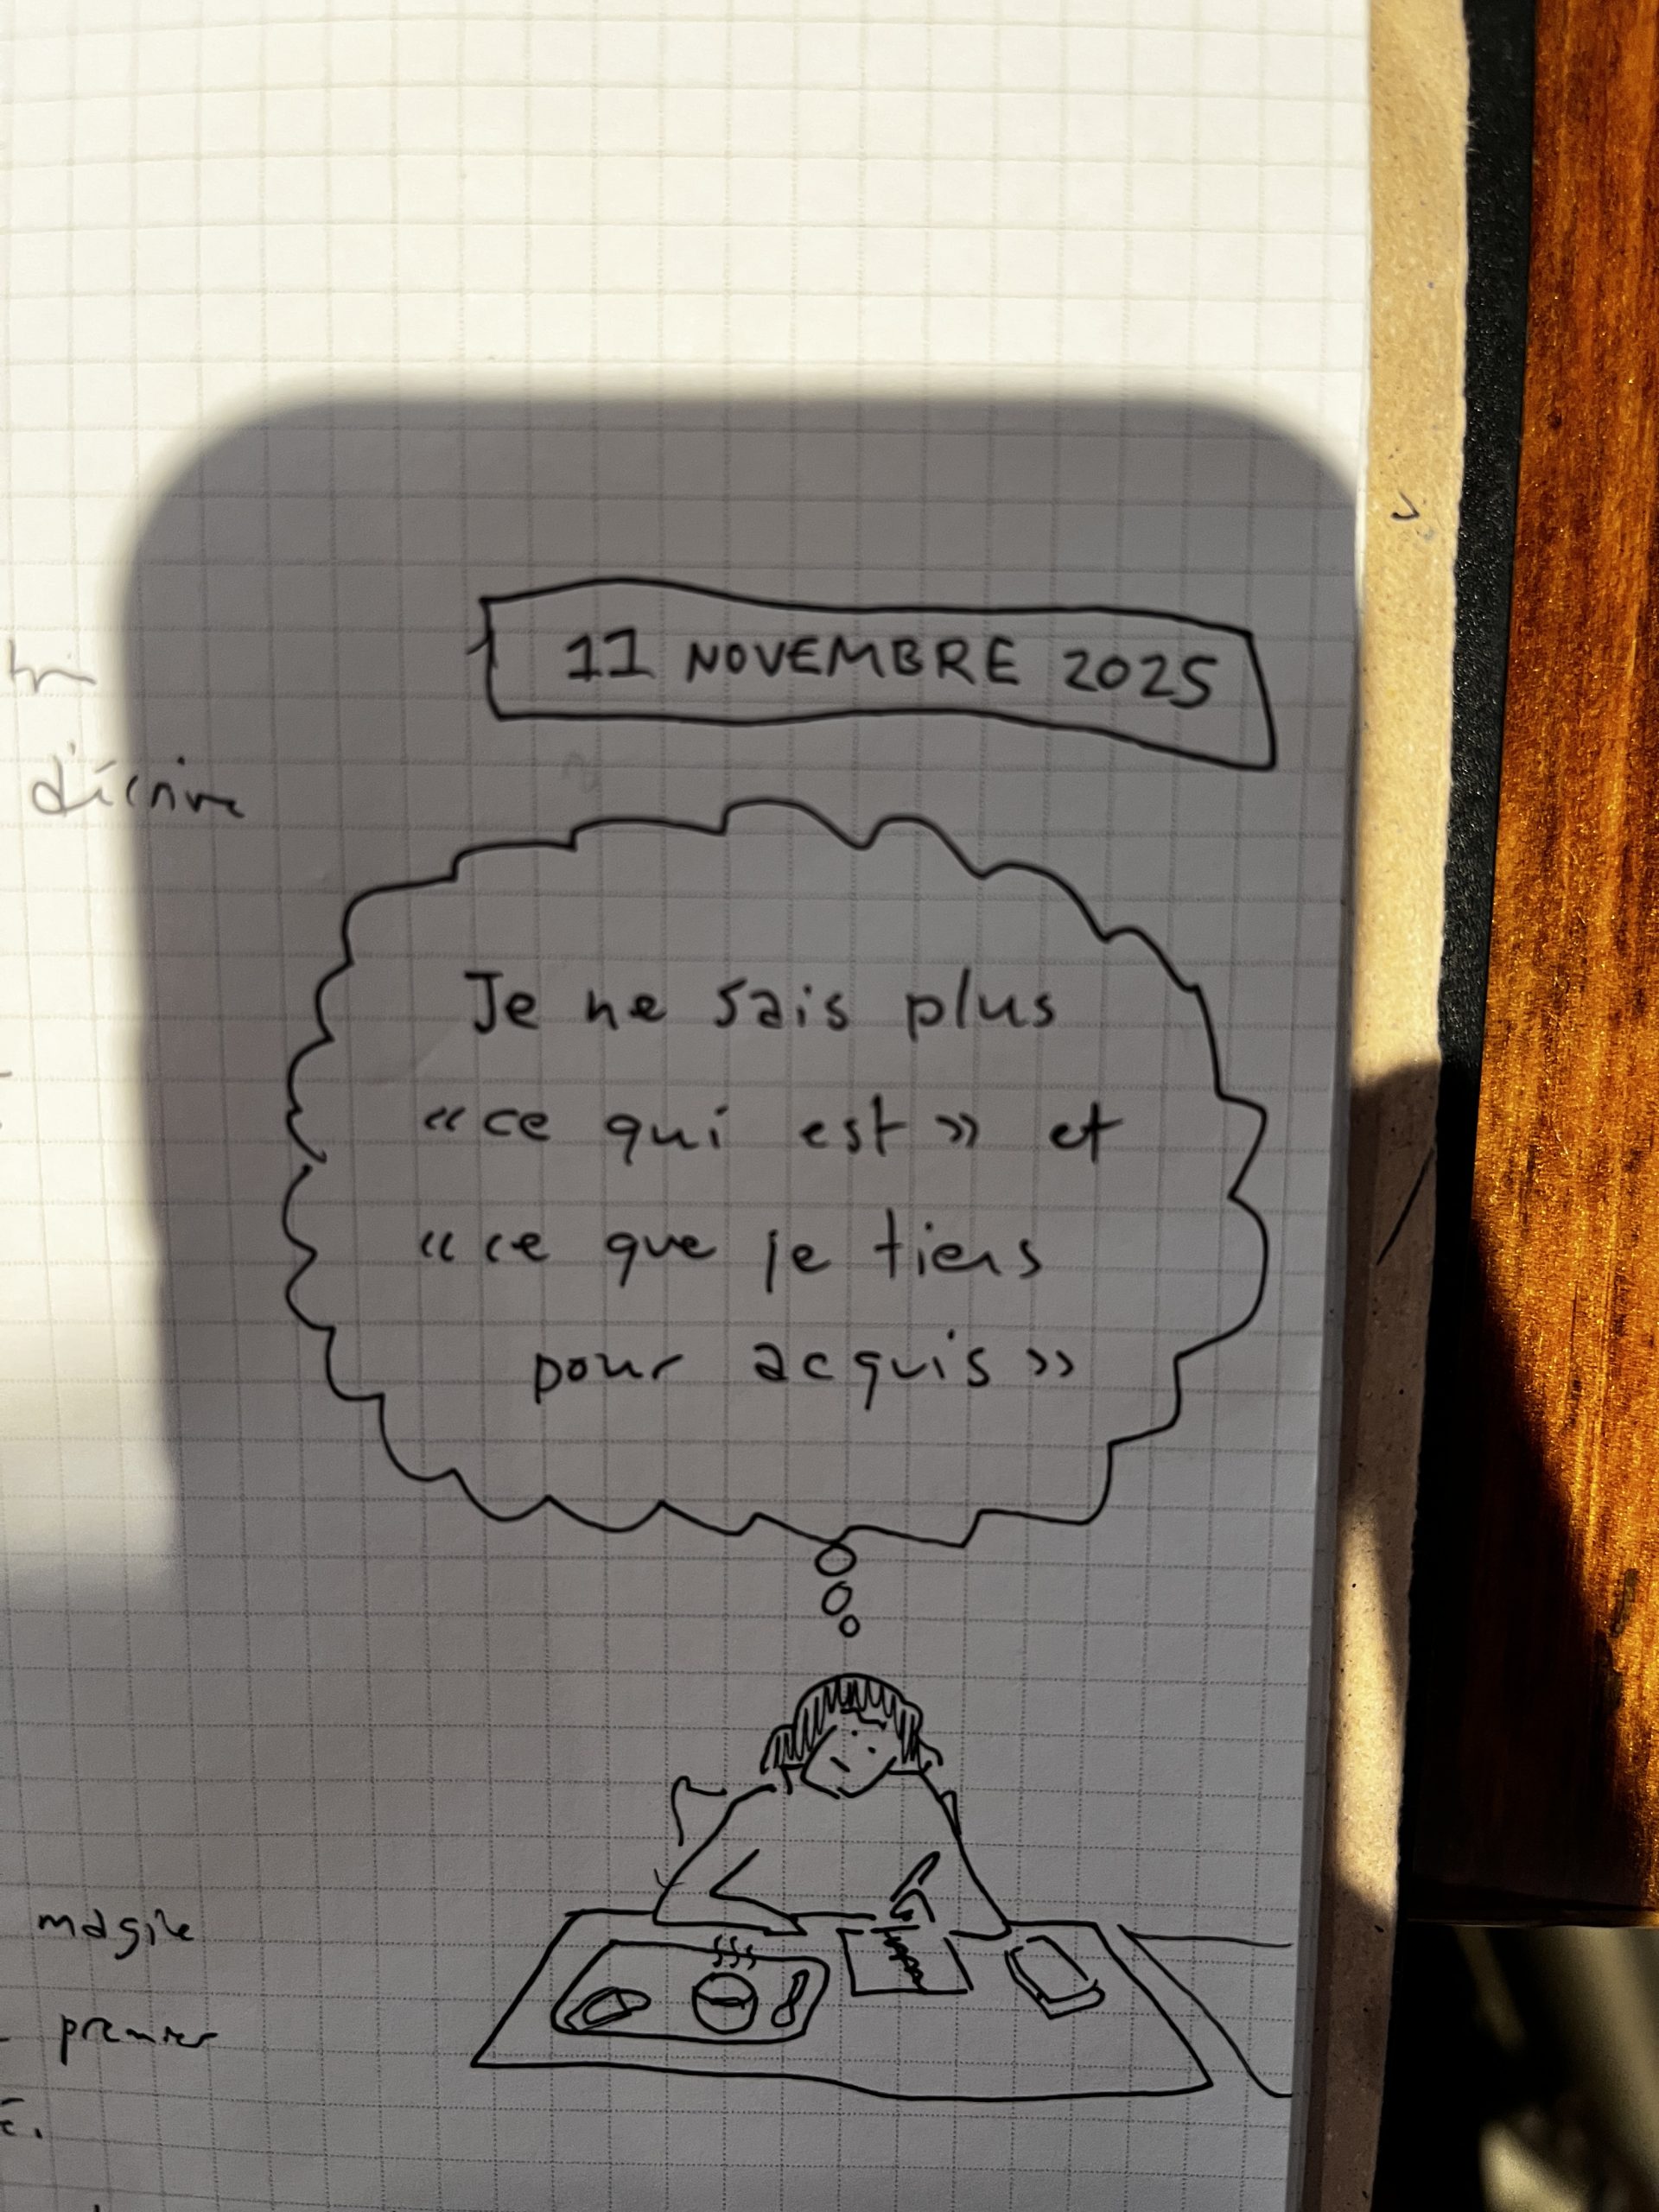 11 NOVEMBRE 2025
d'écrire
Je ne sais plus
« ce qui est » et
« ce que je tiens
pour acquis »
magile
premier